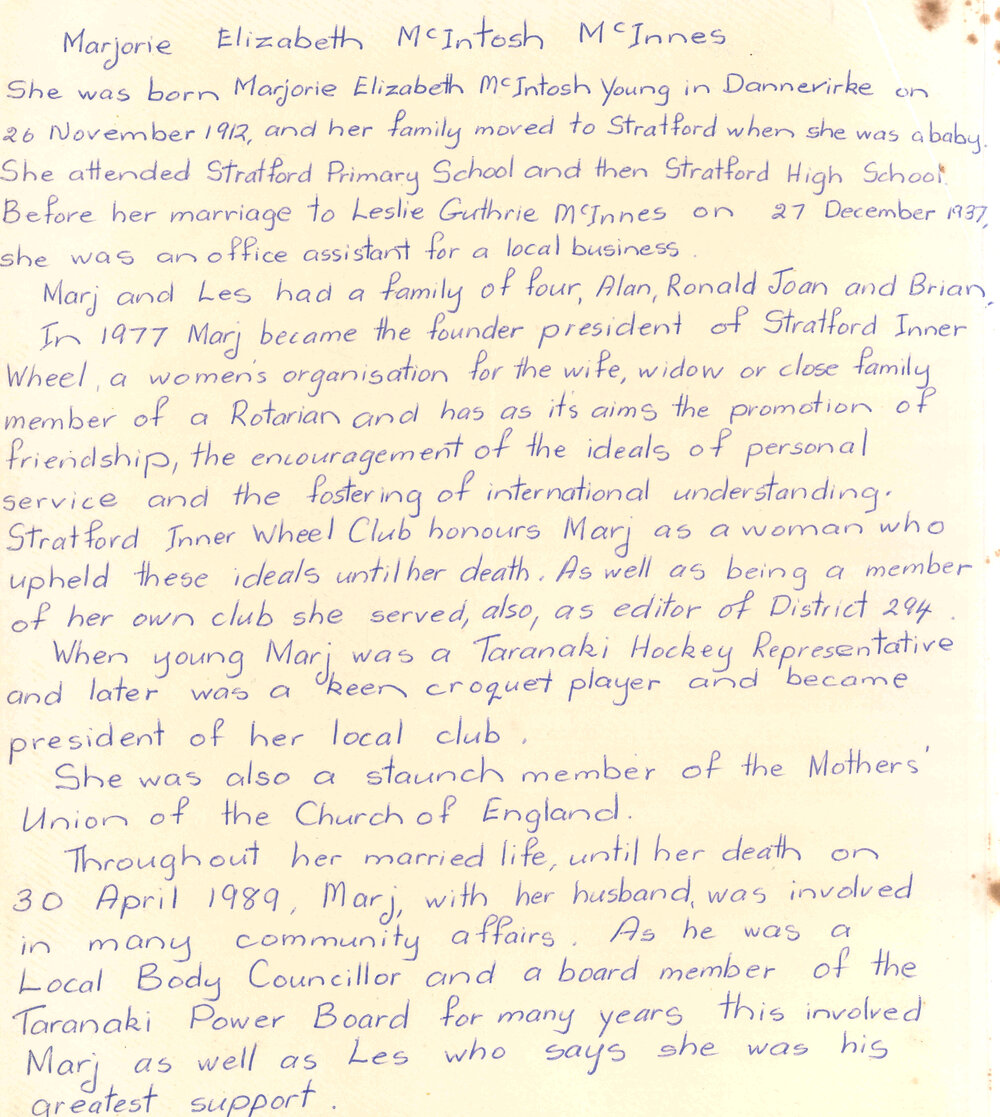 Marjorie Elizabeth McIntosh McInnes
She was born Marjorie Elizabeth McIntosh Young in Dannevirke on
26 November 1912, and her family moved to Stratford when she was a baby.
She attended Stratford Primary School and then Stratford High School.
Before her marriage to Leslie Guthrie McInnes on 27 December 1937,
she was an office assistant for a local business.
Marj and Les had a family of four, Alan, Ronald Joan and Brian.
In 1977 Marj became the founder president of Stratford Inner
Wheel, a women's organisation for the wife, widow or close family
member of a Rotarian and has as it's aims the promotion of
friendship, the encouragement of the ideals of personal
service and the fostering of international understanding.
Stratford Inner Wheel Club honours Marj as a woman who
upheld these ideals until her death. As well as being a member
of her own club she served, also, as editor of District 294.
When young Marj was a Taranaki Hockey Representative
and later was a keen croquet player and became
president of her local club.
She was also a staunch member of the Mothers'
Union of the Church of England.
Throughout her married life, until her death on
30 April 1989, Marj, with her husband, was involved
in many community affairs. As he was a
Local Body Councillor and a board member of the
Taranaki Power Board for many years this involved
Marj as well as Les who says she was his
greatest support.